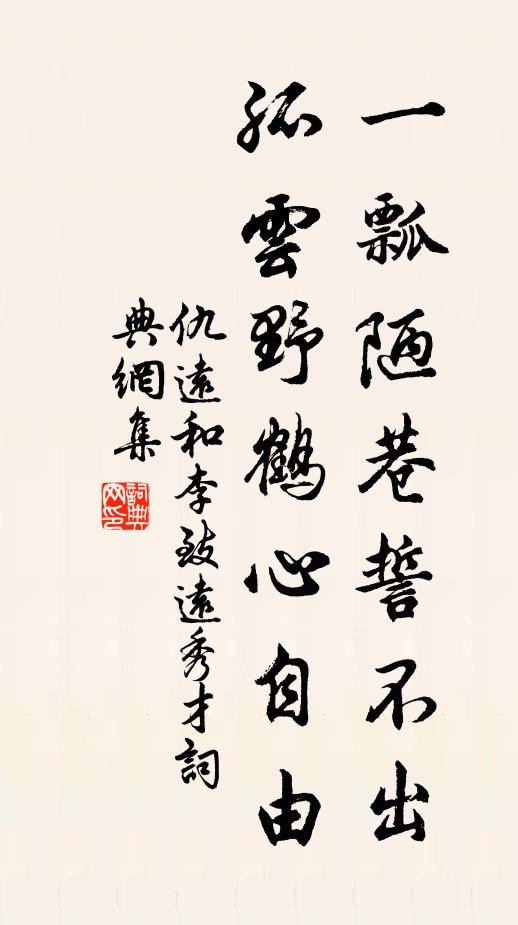 一瓢陋巷誓不出
孤雲野鶴心自由
仇遠和李致遠秀才詞
典網集
詞典
网印